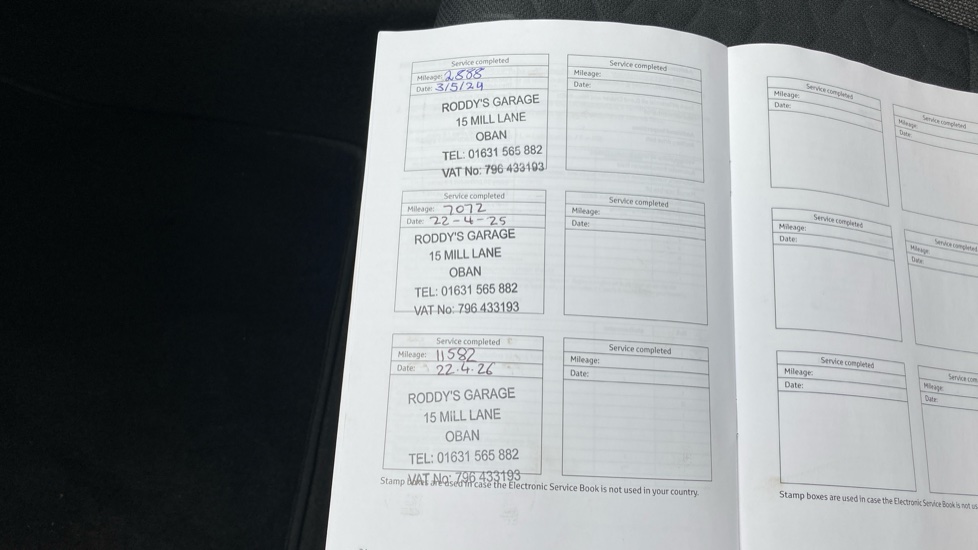 Service completed
Mileage: 2888
Date: 3/5/24
RODDY'S GARAGE
15 MILL LANE
OBAN
TEL: 01631 565 882
VAT No: 796 433193
Service completed
Mileage: 7072
Date: 22-4-25
RODDY'S GARAGE
15 MILL LANE
OBAN
TEL: 01631 565 882
VAT No: 796 433193
Service completed
Mileage: 11582
Date: 22.4.26
RODDY'S GARAGE
15 MILL LANE
OBAN
TEL: 01631 565 882
VAT No: 796 433193
Service completed
Mileage:
Date:
Service completed
Mileage:
Date:
Service completed
Mileage:
Date:
Stamp boxes are used in case the Electronic Service Book is not used in your country.
Service completed
Mileage:
Date:
Service completed
Mileage:
Date:
Service completed
Mileage:
Date:
Service completed
Mileage:
Date:
Service completed
Mileage:
Date:
Service com
Mileage:
Date:
Stamp boxes are used in case the Electronic Service Book is not us